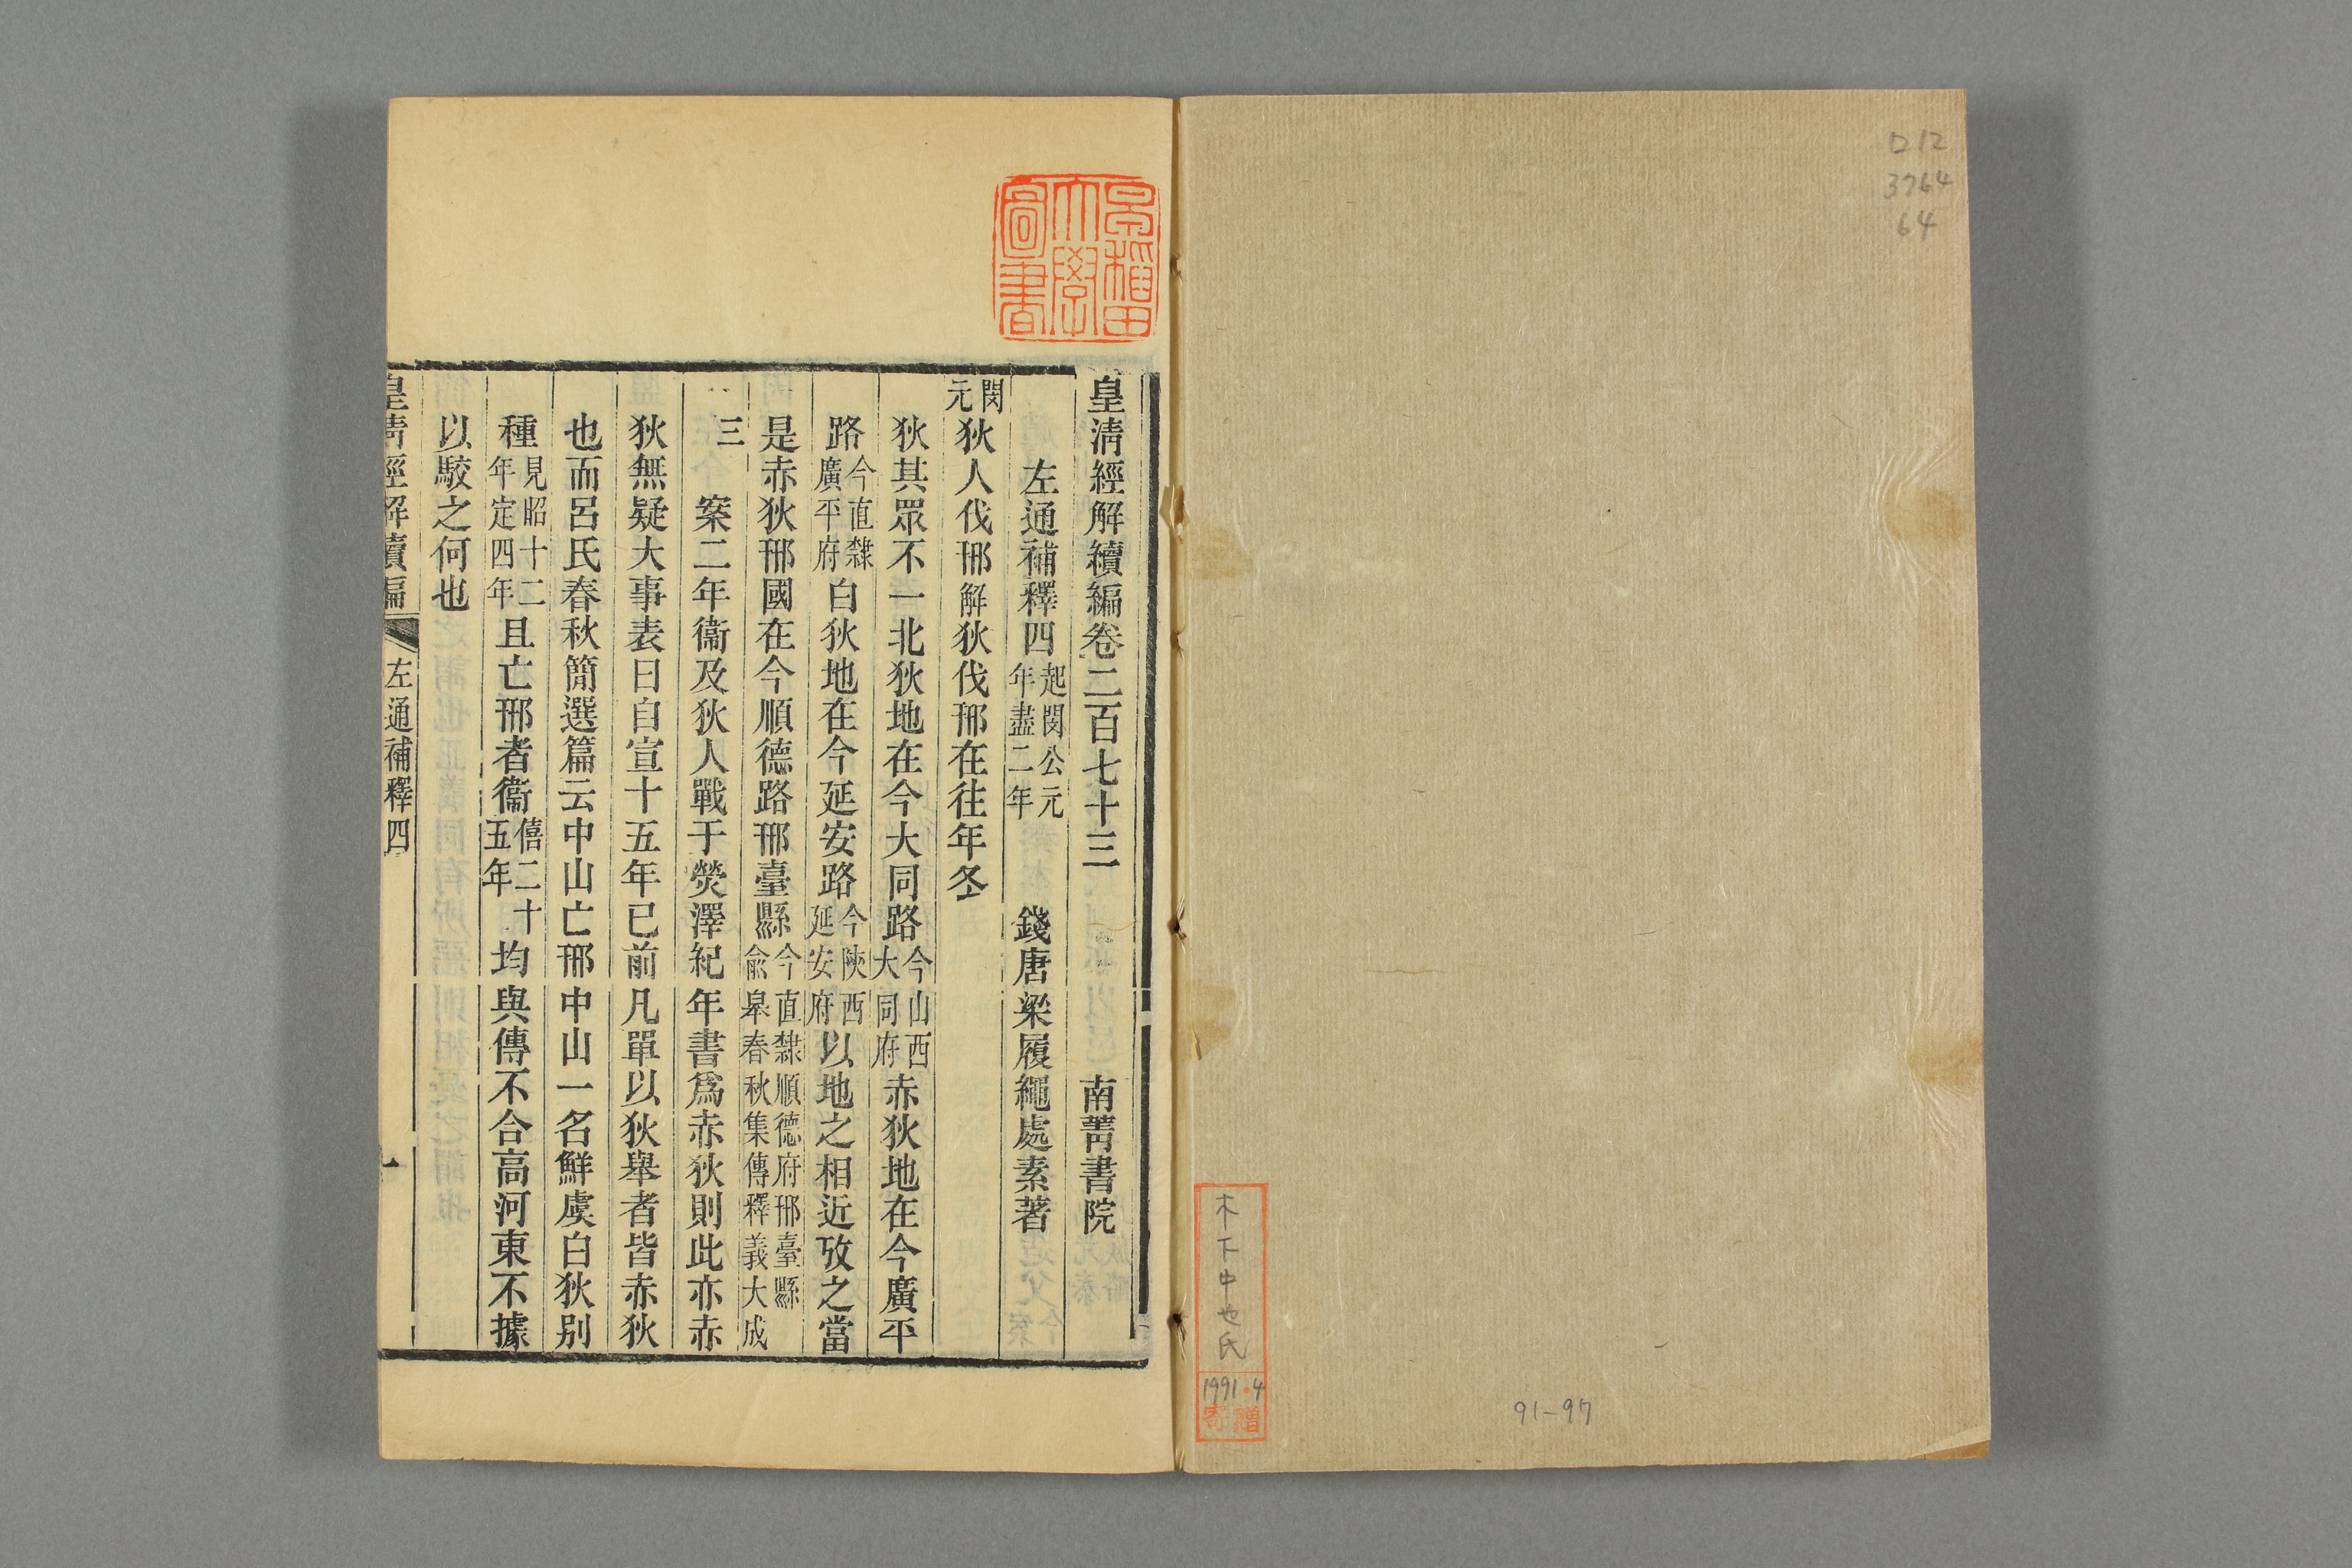 ロ12
3764
64
木下中也氏
1991.4
寄贈
91-97
早稲田大學圖書
皇淸經解續編卷二百七十三 南菁書院
左通補釋四 起閔公元年盡二年 錢唐梁履繩處素著
閔元 狄人伐邢 解狄伐邢在往年冬
狄其眾不一北狄地在今大同路 今山西大同府 赤狄地在今廣平
路 今直隸廣平府 白狄地在今延安路 今陜西延安府 以地之相近攷之當
是赤狄邢國在今順德路邢臺縣 今直隸順德府邢臺縣俞皋春秋集傳釋義大成
三 案二年衞及狄人戰于熒澤紀年書爲赤狄則此亦赤
狄無疑大事表曰自宣十五年已前凡單以狄舉者皆赤狄
也而呂氏春秋簡選篇云中山亡邢中山一名鮮虞白狄别
種 見昭十二年定四年 且亡邢者衞 僖二十五年 均與傳不合高河東不據
以駮之何也
皇淸經解續編 左通補釋四 一